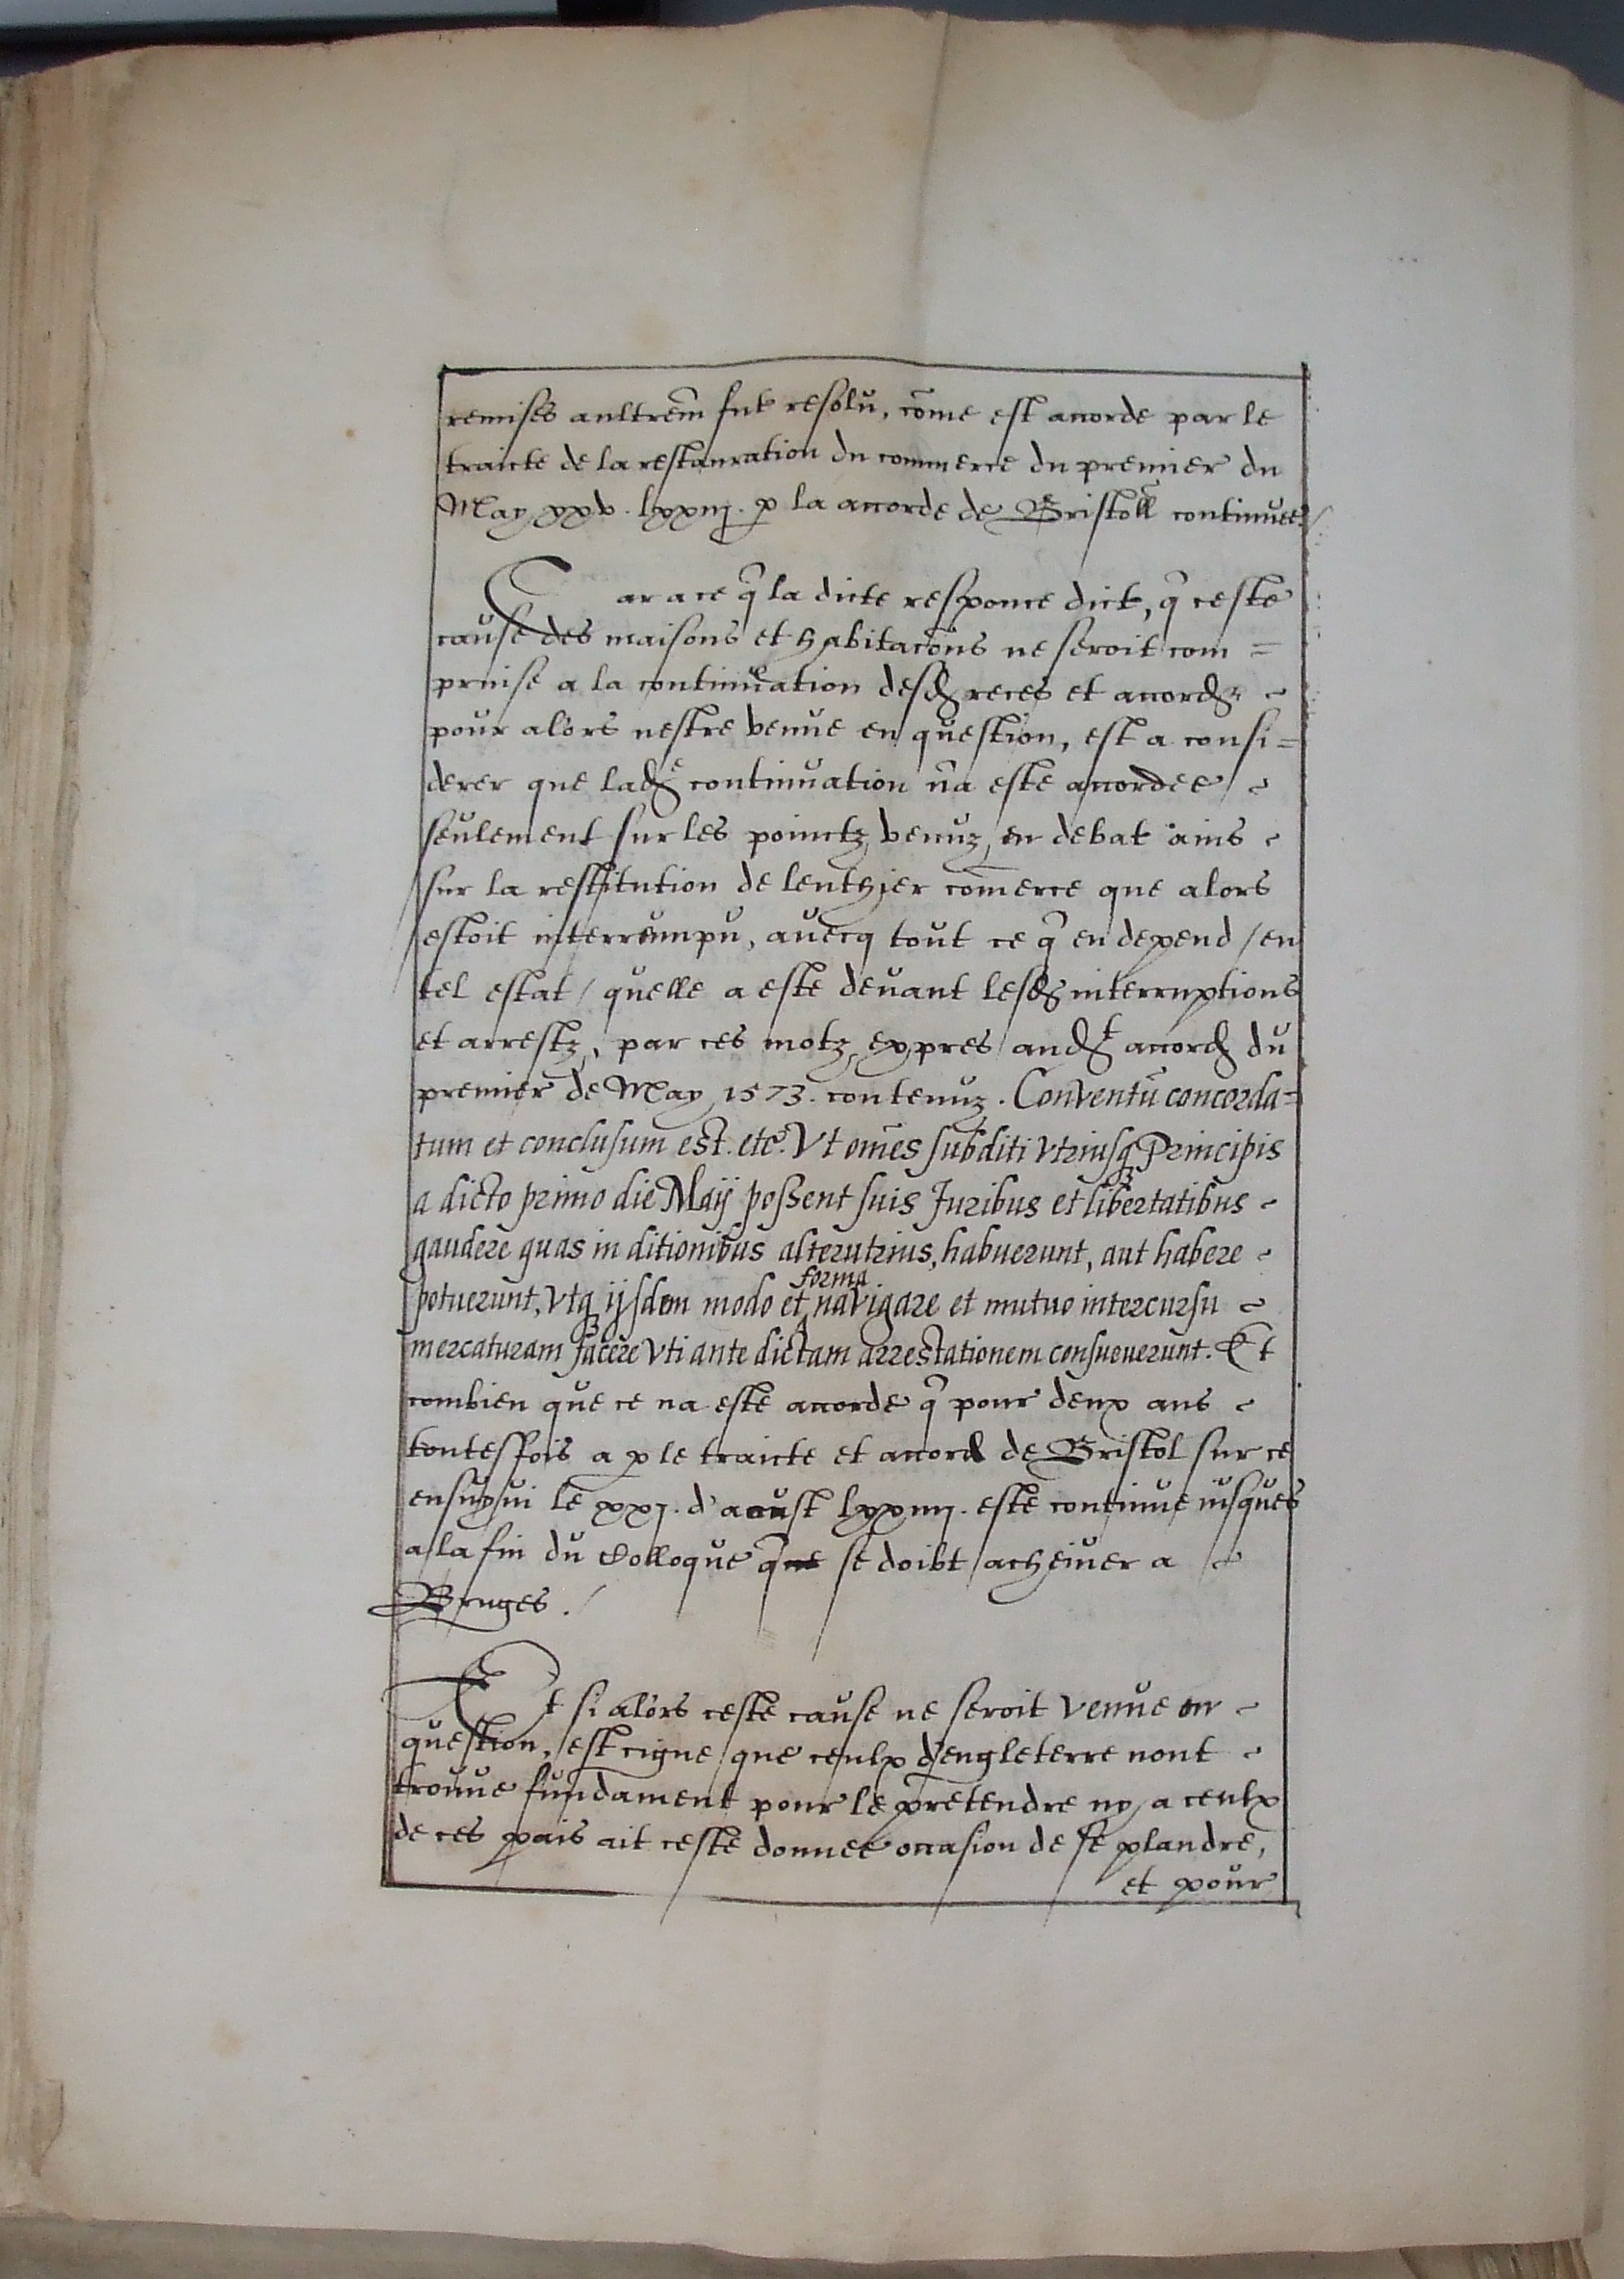 remises aultrem̃ fut resolu, cõme est acorde par le
traicte de la restauration du commerce du premier du
May xvᶜ. lxxiij. p la accorde de Bristoll continuee
Car a ce q̃ la dicte responce dict, q̃ ceste
cause des maisons et habitacõns ne seroit com=
prinse a la continuation desd. reces et acordz
pour alors nestre venue en question, est a consi=
derer que lad.ᵉ continuation n'a este acordee
seulement sur les poinctz venuz en debat ains
sur la restitution de lenthier com̃erce que alors
estoit interrumpu, auecq tout ce q̃ en depend / en
tel estat / quelle a este deuant lesd. interruptions
et arrestz, par ces motz expres aud.ᵗ accord du
premier de May 1573. contenuz. Conventũ concorda=
tum et conclusum est. etc. Vt om̃es subditi vtriusq Principis
a dicto primo die Maij possent suis Juribus et libertatibus
gaudere quas in ditionibus alterutrius, habuerunt, aut habere
potuerunt, vtq ijsdem modo et forma navigare et mutuo intercursu
mercaturam facere vti ante dictam arrestationem consueuerunt. Et
combien que ce na este acorde q̃ pour deux ans
toutesfois a p le traicte et acord de Bristol sur ce
ensuyui le xxj. d'aoust lxxiiij. este continue iusques
a la fin du Colloque q̃ se doibt acheiuer a
Bruges. /
Et si alors ceste cause ne seroit venue en
question, est cigne que ceulx d'engleterre nont
trouue fundament pour le pretendre ny a ceulx
de ces pais ait ceste donnee occasion de se plandre,
et pour